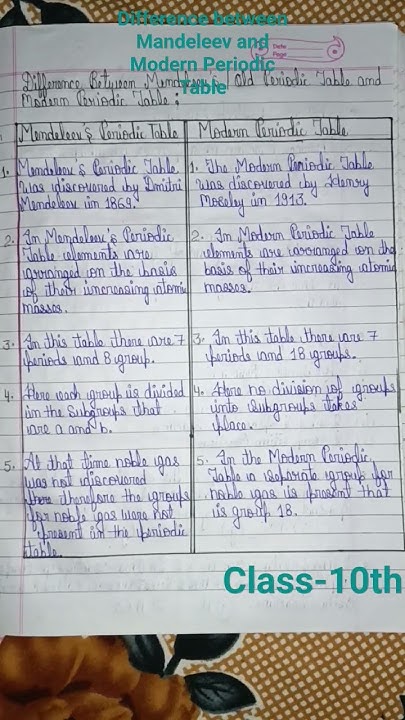 Difference between
Mandeleev and
Modern Periodic
Table
Date
Page
Difference Between Mendeleev's Old Periodic Table and
Modern Periodic Table :
Mendeleev's Periodic Table
Modern Periodic Table
1. Mendeleev's Periodic Table
was discovered by Dmitri
Mendeleev in 1869.
1. The Modern Periodic Table
was discovered by Henry
Moseley in 1913.
2. In Mendeleev's Periodic
Table elements are
arranged on the basis
of their increasing atomic
masses.
2. In Modern Periodic Table
elements are arranged on the
basis of their increasing atomic
masses.
3. In this table there are 7
periods and 8 group.
3. In this table there are 7
periods and 18 groups.
4. Here each group is divided
in the subgroups that
are a and b.
4. Here no division of groups
into subgroups takes
place.
5. At that time noble gas
was not discovered
there therefore the groups
for noble gas were not
present in the periodic
table.
5. In the Modern Periodic
Table a separate group for
noble gas is present that
is group 18.
Class-10th